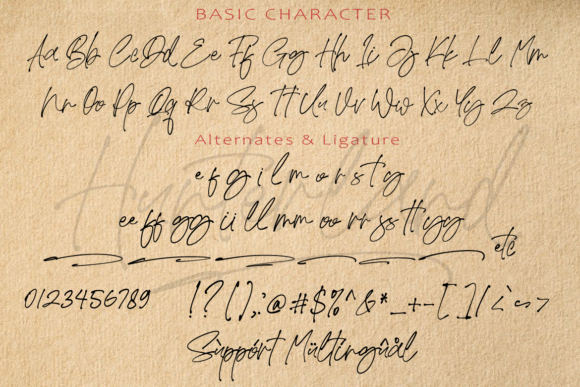 BASIC CHARACTER
Aa Bb Cc Dd Ee Ff Gg Hh Ii Jj Kk Ll Mm
Nn Oo Pp Qq Rr Ss Tt Uu Vv Ww Xx Yy Zz
Alternates & Ligature
e f g i l m o r s t y
ee ff gg ii ll mm oo rr ss tt yy
etc
0123456789 !?(),;:@#$%^&*_+-[]|/\<=>
Sùppórt Mültíngûål